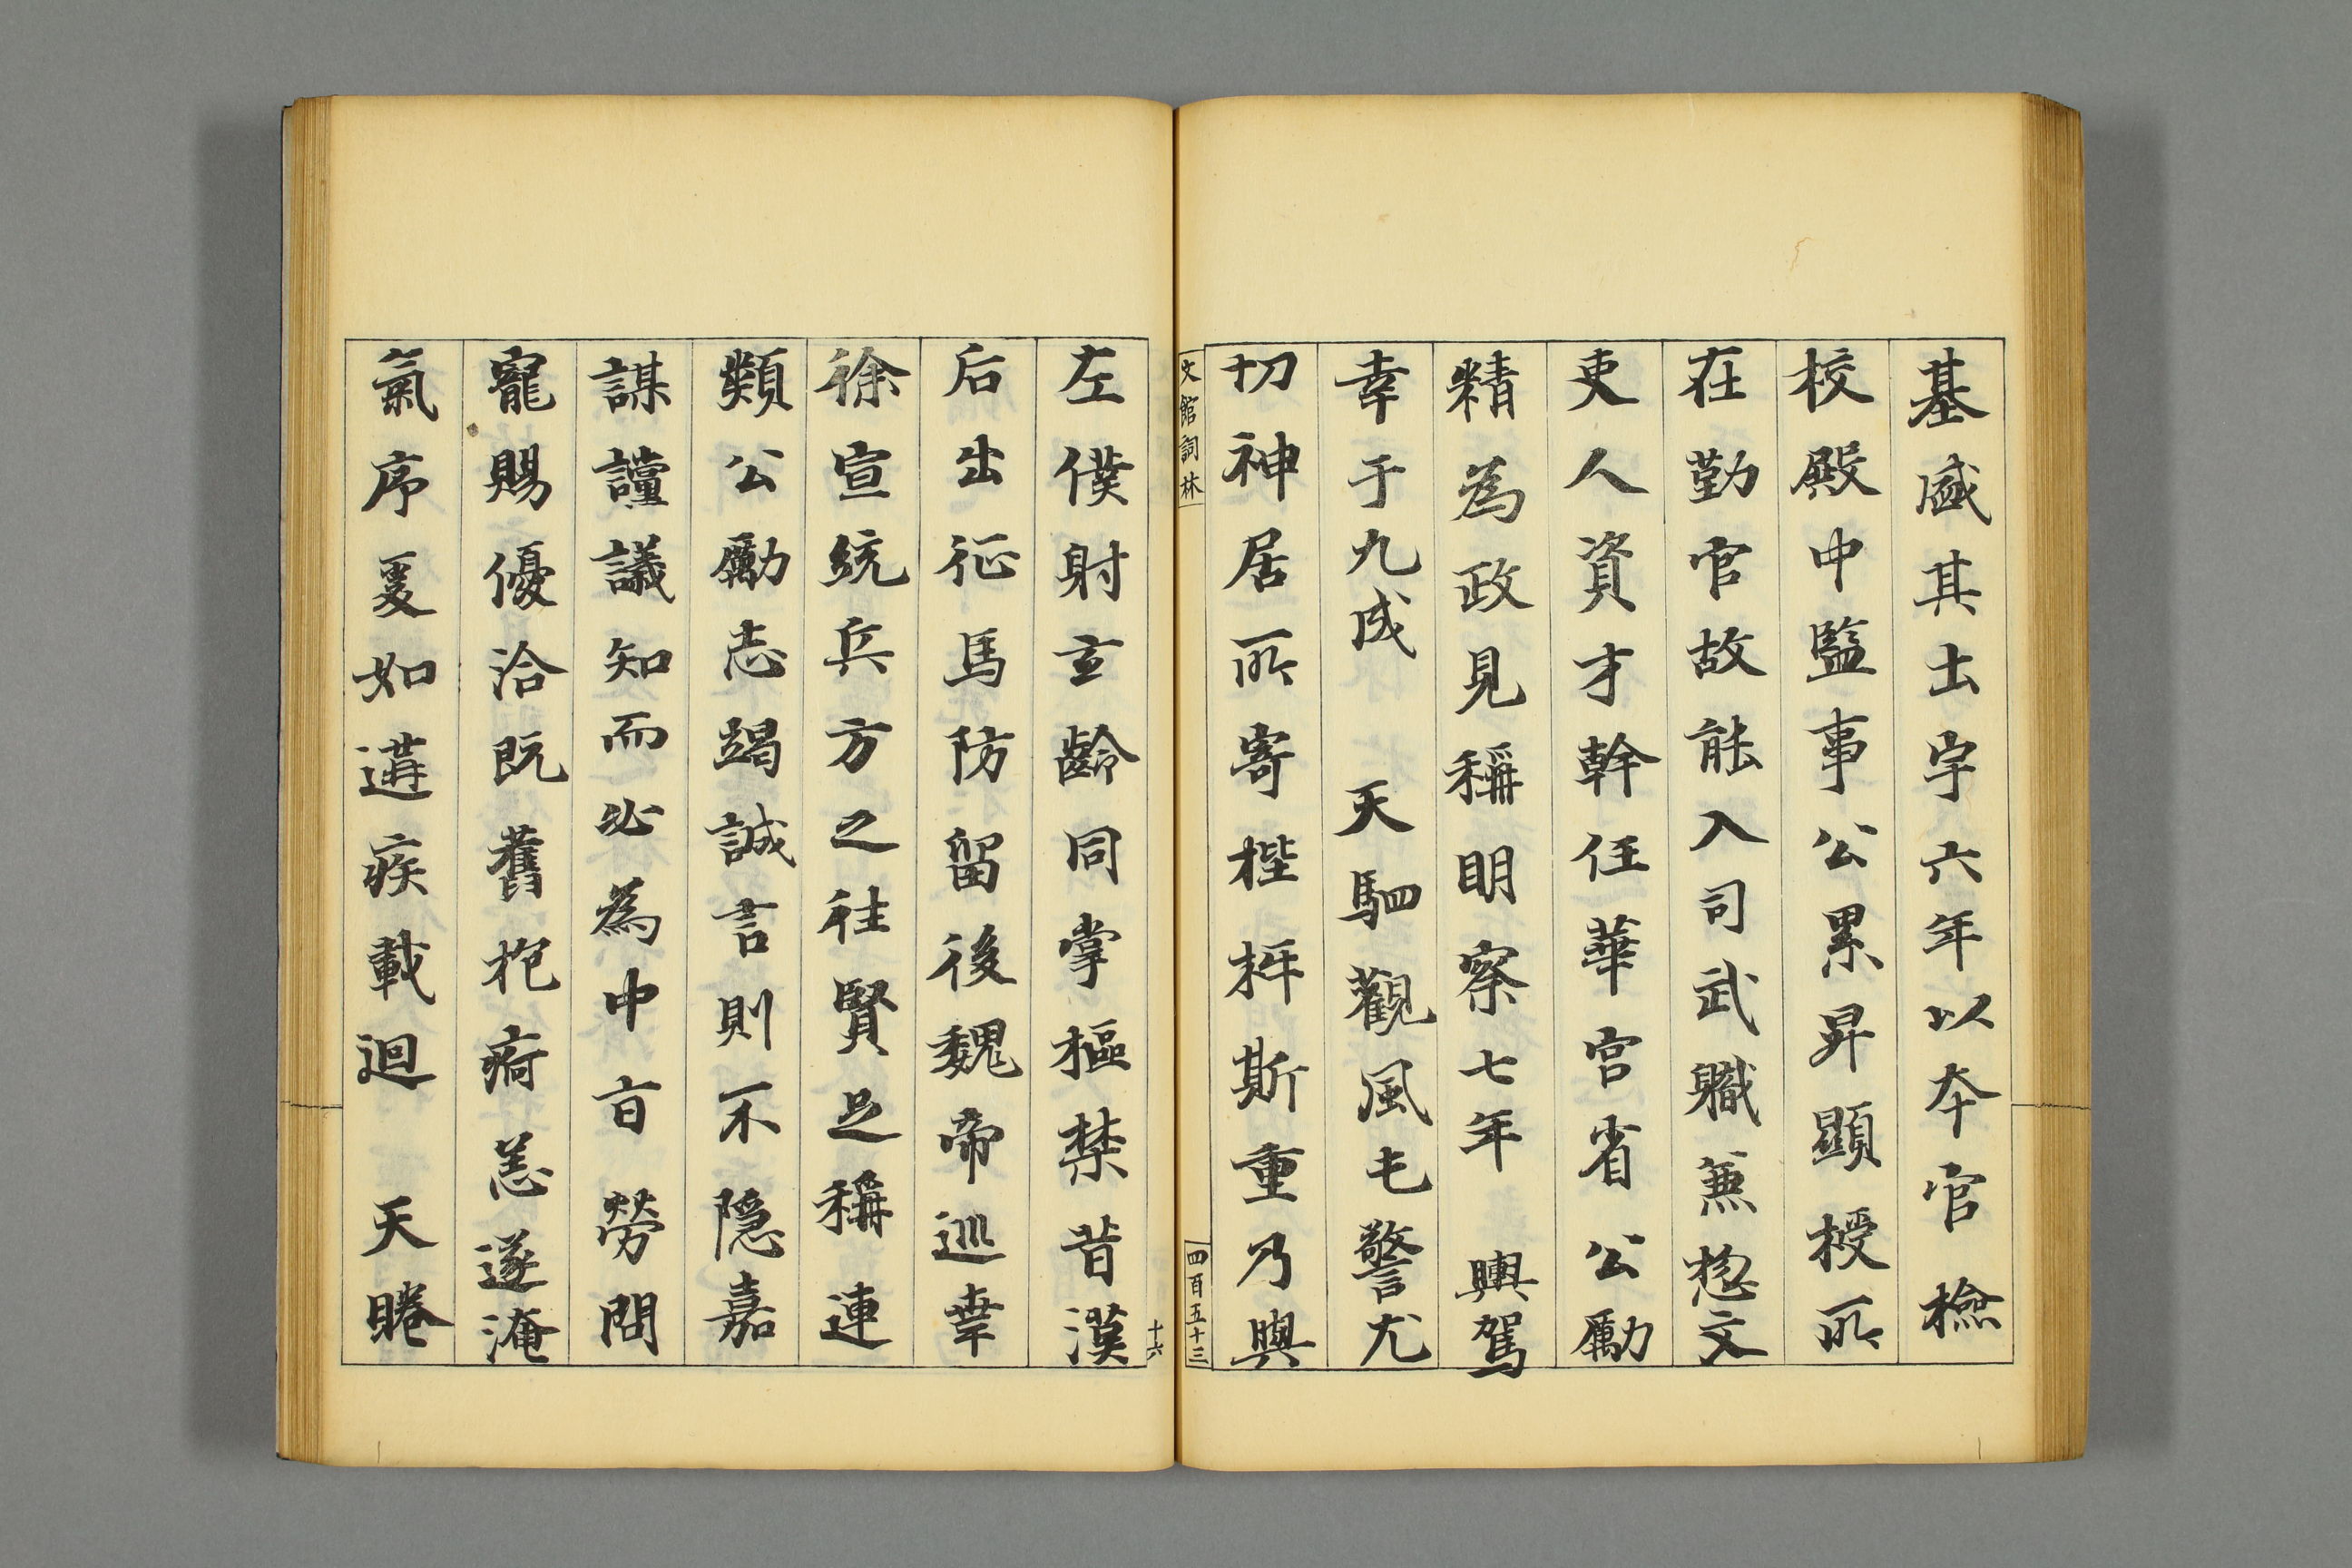 基盛其土宇六年以本官檢
校殿中監事公累昇顯授所
在勤官故能入司武職兼惣文
吏人資才幹任華宮省公勵
精為政見稱明察七年輿駕
幸于九成天駟觀風屯警尤
切神居所寄梐枑斯重乃與
文館詞林
四百五十三
十六
左僕射玄齡同掌樞禁昔漢
后出征馬防留後魏帝巡幸
徐宣統兵方之往賢足稱連
類公勵志竭誠言則不隱嘉
謀讜議知而必為中旨勞問
寵賜優洽既舊抱痾恙遂淹
氣序夏如遘疾載迴天睠